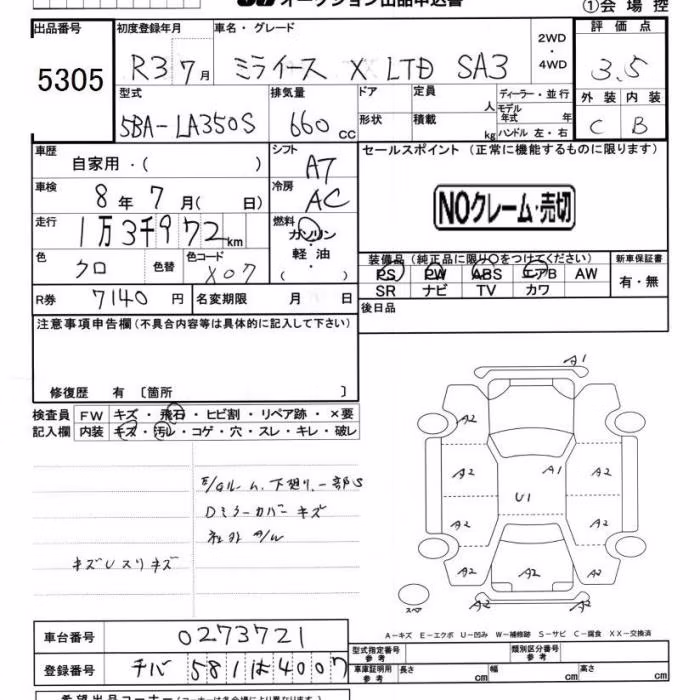 オークション出品申込書
①会場控
出品番号 5305
初度登録年月 R3 7月
車名・グレード ミライース X LTD SA3
2WD・4WD
評価点 3.5
外装 C 内装 B
型式 5BA-LA350S
排気量 660 cc
ドア 形状
定員 人 積載 kg
ディーラー・並行
モデル年式 年
ハンドル 左・右
車歴 自家用・( )
シフト A7
セールスポイント (正常に機能するものに限ります)
車検 8年 7月( 日)
冷房 AC
NOクレーム・売切
走行 1万3千972km
燃料 ガソリン・軽油・( )
色 クロ 色替 色コード X07
装備品 (純正品に限り○をつけてください)
PS PW ABS エアB AW
SR ナビ TV カワ
新車保証書 有・無
R券 7140円 名変期限 月 日
後日品
注意事項申告欄(不具合内容等は具体的に記入して下さい)
修復歴 有 〔箇所 〕
検査員記入欄 FW キズ・飛石・ヒビ割・リペア跡・×要
内装 キズ・汚レ・コゲ・穴・スレ・キレ・破レ
E/Gルーム、下廻り、一部S
Dミラーカバー キズ
社外 A/W
キズUスリキズ
A1
A2
A2 A1 A2
U1
A2 A2
A2 A2 A2
A2
スペア
A-キズ E-エクボ U-凹み W-補修跡 S-サビ C-腐食 XX-交換済
車台番号 0273721
登録番号 チバ 581 は 4007
型式指定番号 参考 類別区分番号 参考
車庫証明用 参考 長さ cm 幅 cm 高さ cm